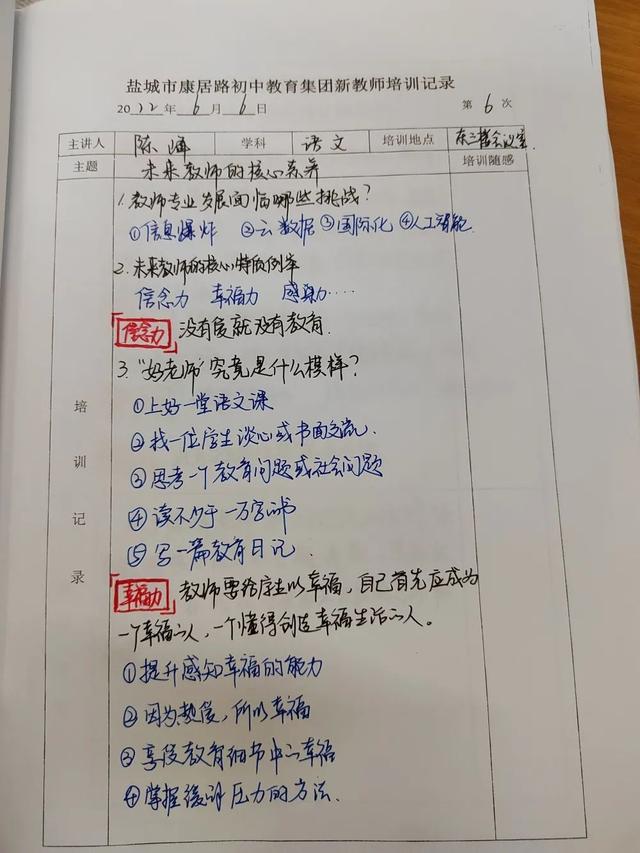 盐城市康居路初中教育集团新教师培训记录
2022年6月6日 第6次
主讲人 陈 学科 语文 培训地点 东三楼会议室
主题 未来教师的核心素养 培训随感
1. 教师专业发展面临哪些挑战?
①信息爆炸 ②云数据 ③国际化 ④人工智能
2. 未来教师的核心特质例举
信念力 幸福力 感染力……
信念力 没有爱就没有教育.
3. “好老师”究竟是什么模样?
①上好一堂语文课
②找一位学生谈心或书面交流.
③思考一个教育问题或社会问题
④读不少于一万字的书
⑤写一篇教育日记.
培训记录
幸福力 教师要给学生以幸福,自己首先应成为
一个幸福之人,一个懂得创造幸福生活之人。
①提升感知幸福的能力
②因为热爱,所以幸福
③享受教育细节中之幸福
④掌握缓解压力的方法.